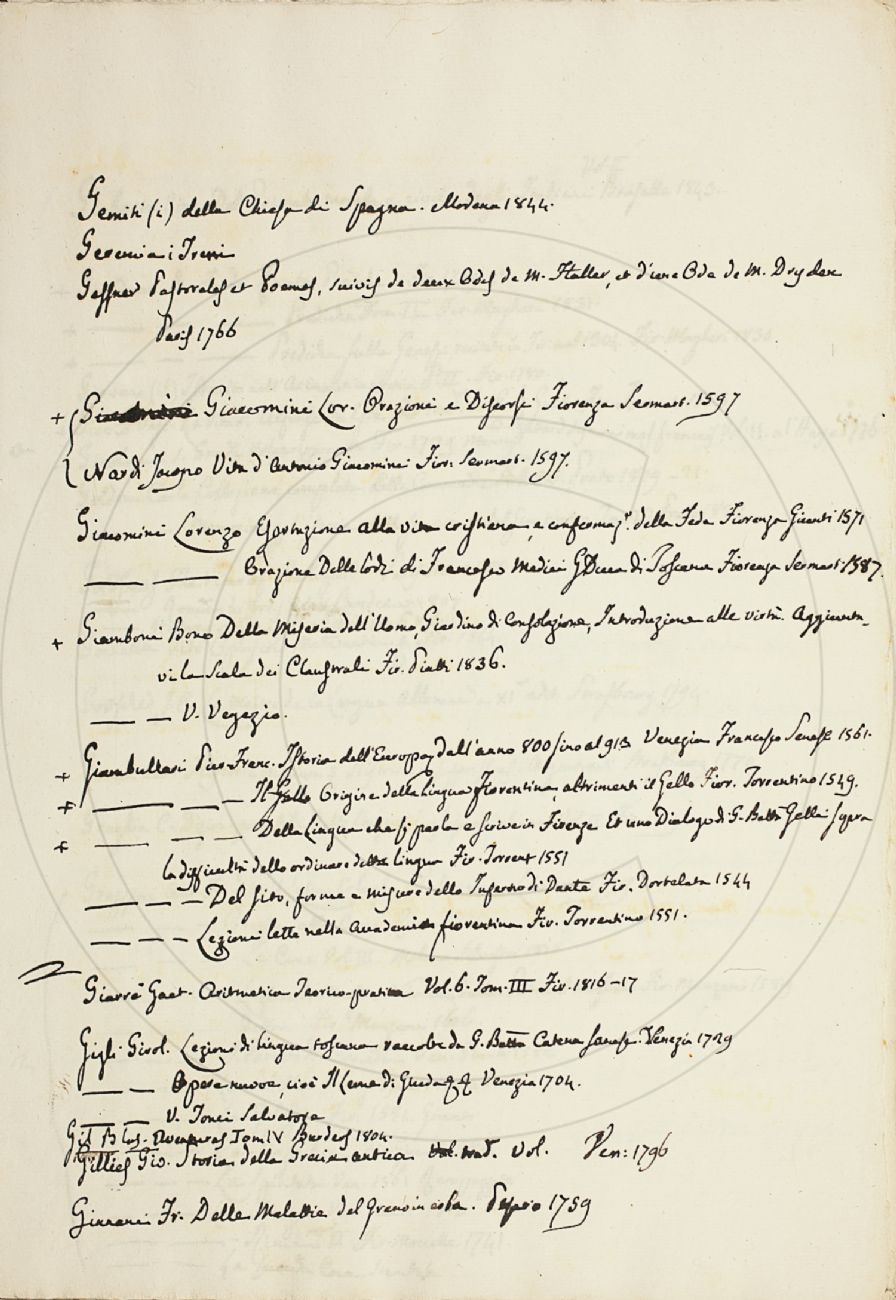 Gemiti (i) della Chiesa di Spagna. Modena 1844.
Geremia i Treni
Gessner Pastorales et Poemes, suivis de deux Odes de M. Haller, et d'une Ode de M. Dryden
Paris 1766
+ Giacomini Lor. Orazioni e Discorsi Fiorenza Sermart. 1597
Nardi Jacopo Vita d'Antonio Giacomini Fior. Sermart. 1597.
Giacomini Lorenzo Esortazione alla vita cristiana, e confermaz.e della Fede Fiorenza Giunti 1571
—— —— Orazione Delle lodi di Francesco Medici G Duca di Toscana Fiorenza Sermart. 1587.
+ Giamboni Bono Della Miseria dell'Uomo, Giardino di Consolazione, Introduzione alle virtù. Aggiunta-
vi la Scala dei Claustrali Fir. Piatti 1836.
—— — V. Vegezio.
+ Giambullari Pier Franc. Istoria dell'Europa, dall'anno 800 sino al 913 Venezia Francesco Senese 1561.
+ —— — — Il Gello Origine della lingua fiorentina, altrimenti il Gello Fior. Torrentino 1549.
+ —— — — Della Lingua che si parla e scrive in Firenze Et uno Dialogo di G. Batta Gelli sopra
la difficultà dello ordinare detta lingua Fir. Torrent 1551
—— — — Del sito, forma e misure dello Inferno di Dante Fir. Dortelata 1544
—— — — Lezioni lette nella Accademia fiorentina Fir. Torrentino 1551.
Giarrè Gaet. Aritmetica Teorico-pratica Vol. 6. Tom. III Fir. 1816-17
Gigli Girol. Lezioni di lingua toscana raccolte da G. Batta Catena Sanese. Venezia 1729
—— — Opere nuove, cioè Venezia 1704.
—— — V. Tonci Salvatore
Gil Blas. Aventures Tom IV 1804.
Gillies Gio. Storia della Grecia antica trad. Vol. Ven: 1796
Ginanni Fr. Delle Malattie del grano in erba. Pesaro 1759